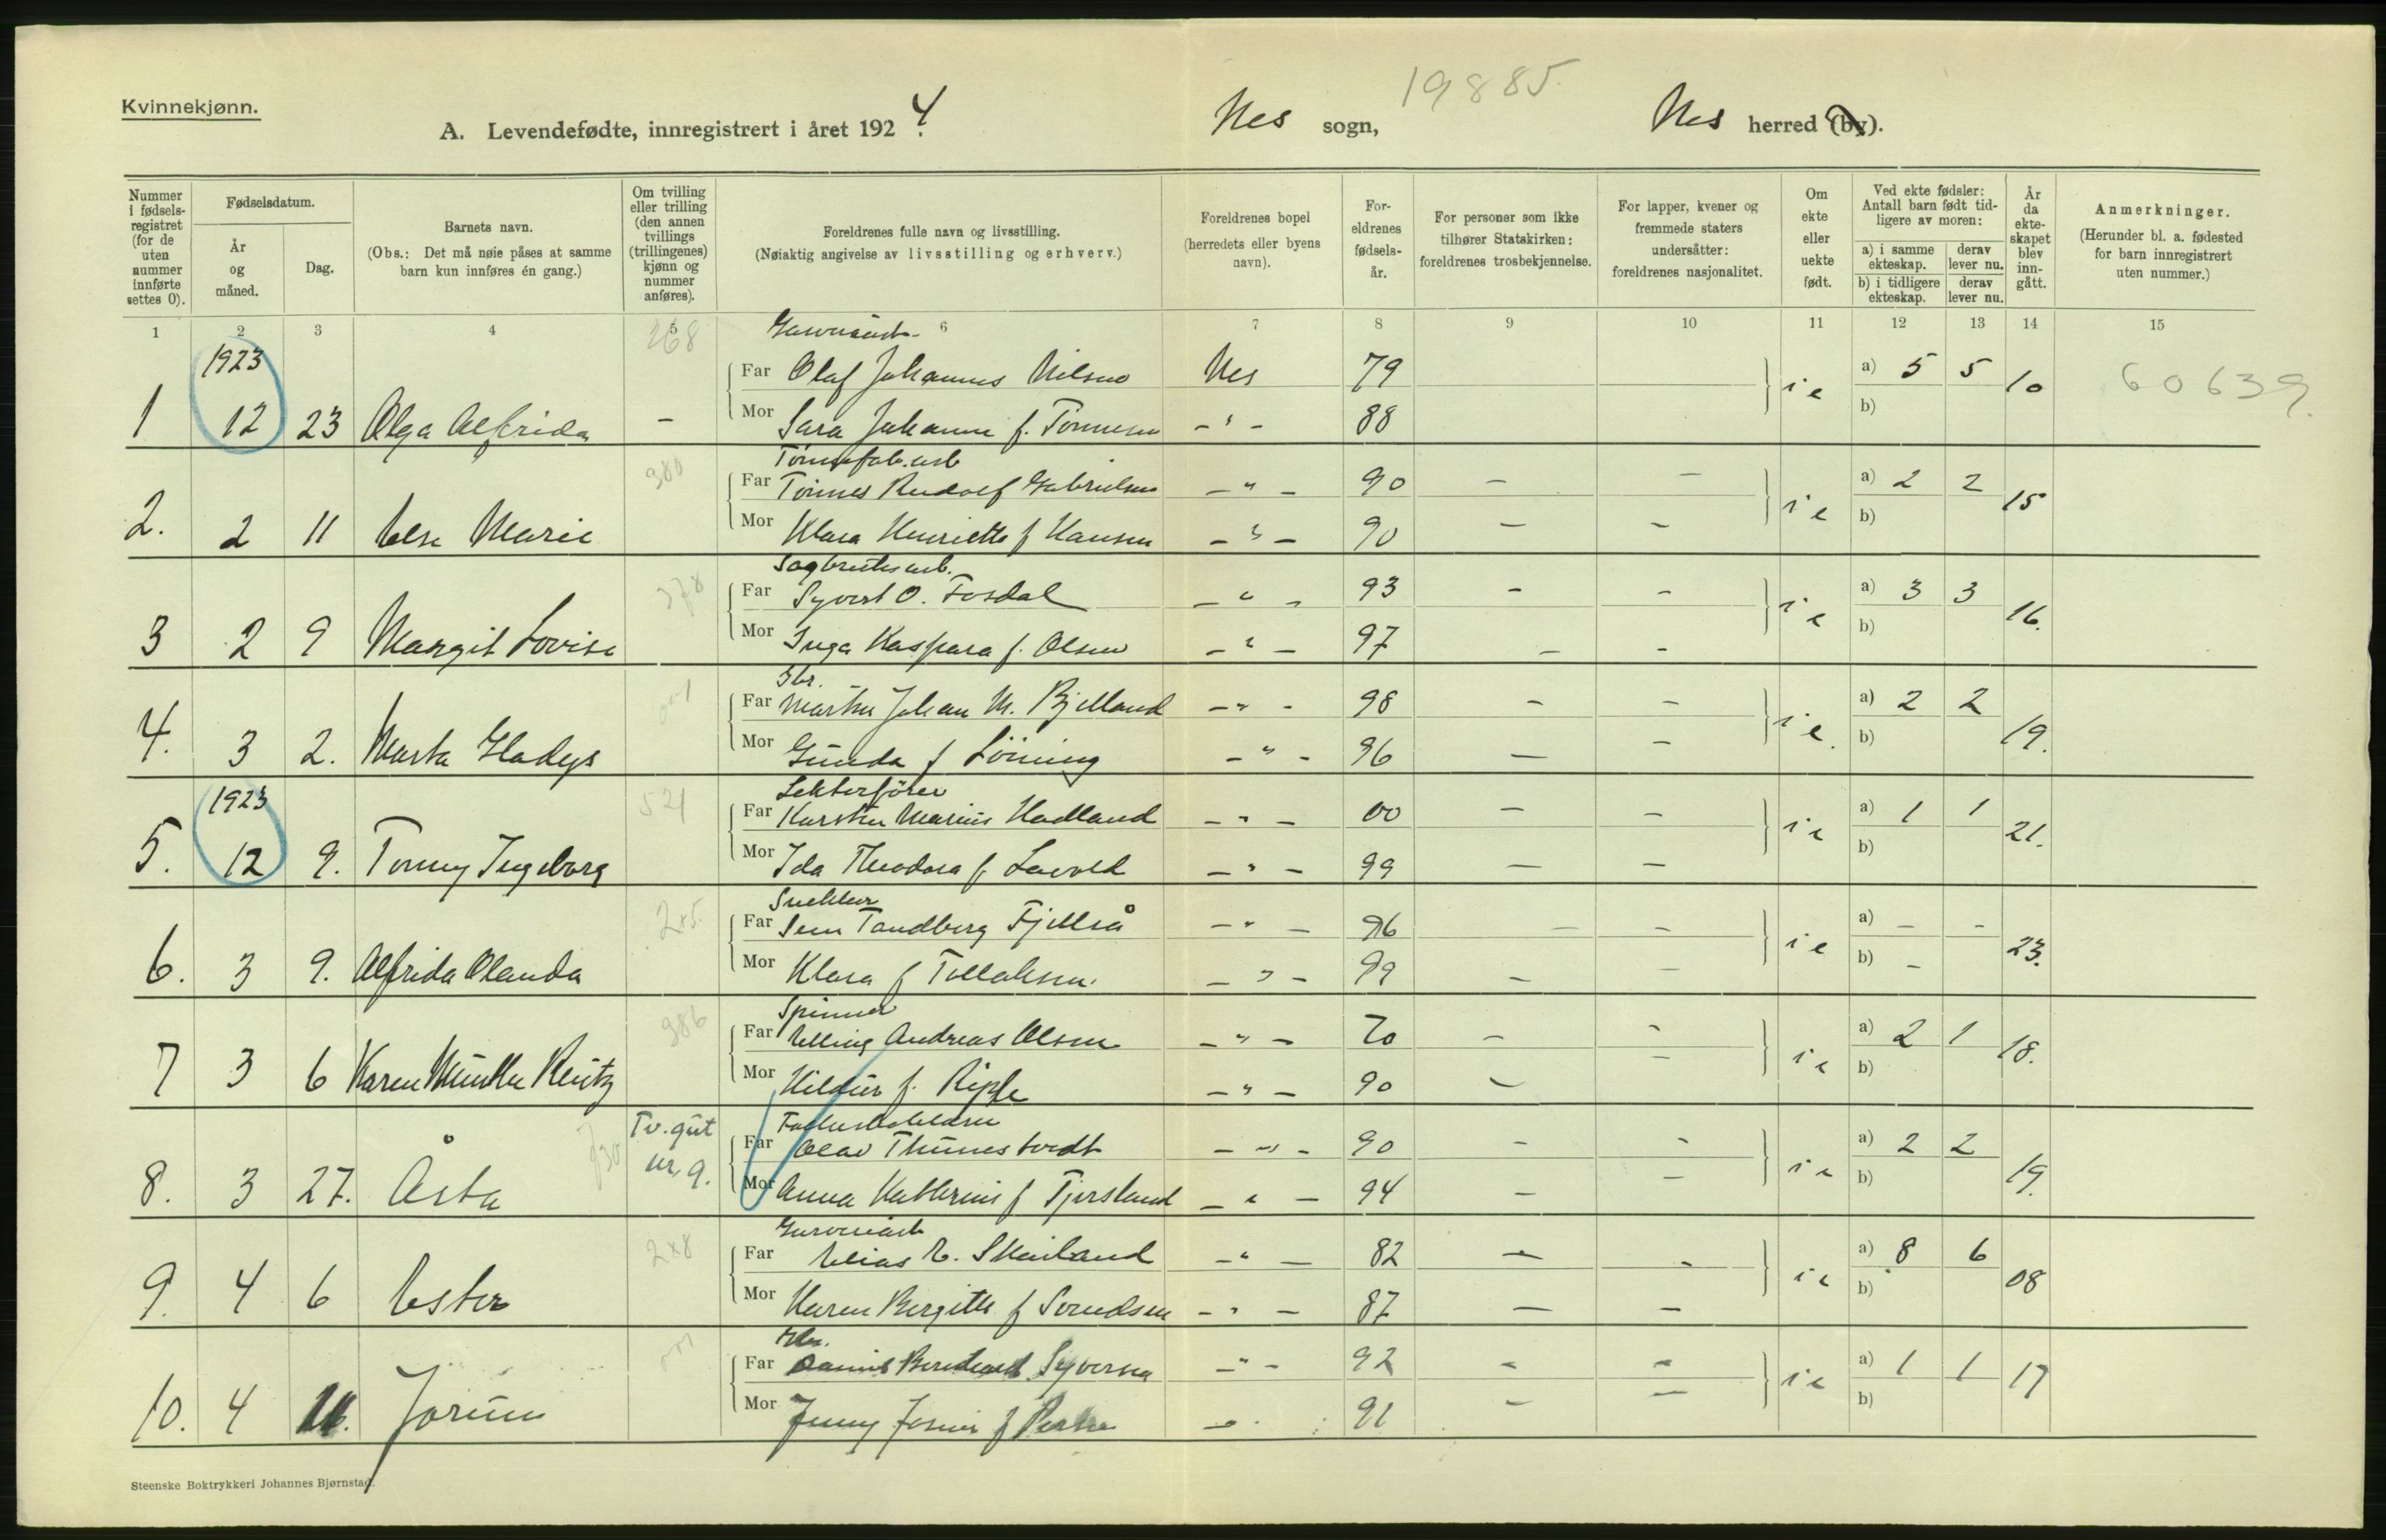 Kvinnekjønn.
19885.
A. Levendefødte, innregistrert i året 1924.
Nes sogn,
Nes herred (by).
Nummer i fødsels-registret (for de uten nummer innførte settes 0).
Fødselsdatum.
År og måned.
Dag.
Barnets navn.
(Obs.: Det må nøie påses at samme barn kun innføres én gang.)
Om tvilling eller trilling (den annen tvillings (trillingenes) kjønn og nummer anføres).
Foreldrenes fulle navn og livsstilling.
(Nøiaktig angivelse av livsstilling og erhverv.)
Foreldrenes bopel (herredets eller byens navn).
For-eldrenes fødsels-år.
For personer som ikke tilhører Statskirken: foreldrenes trosbekjennelse.
For lapper, kvener og fremmede staters undersåtter: foreldrenes nasjonalitet.
Om ekte eller uekte født.
Ved ekte fødsler: Antall barn født tid-ligere av moren:
a) i samme ekteskap.
derav lever nu.
b) i tidligere ekteskap.
derav lever nu.
År da ekte-skapet blev inn-gått.
Anmerkninger.
(Herunder bl. a. fødested for barn innregistrert uten nummer.)
1 2 3 4 5 6 7 8 9 10 11 12 13 14 15
268
1923
Far Olaf Johannes Nilsen Nes 79 a) 5 5 60639.
1 12 23 Olga Alfrida – Mor Sara Johanne f. Tønnesen – " – 88 i e b) 10
380
Tønnefab.arb
Far Tønnes Rudolf Gabrielsen – " – 90 – – a) 2 2
2. 2 11 Else Marie Mor Klara Henriette f Hansen – " – 90 – – i e b) 15
378
Sagbruksarb.
Far Syvert O. Fosdal – " – 93 – – a) 3 3
3 2 9 Margit Lovise Mor Inga Kaspara f. Olsen – " – 97 – – i e b) 16.
Far Martin Johan M. Bjelland – " – 98 – – a) 2 2
4. 3 2. Marta Gladys Mor Gunda f Löining – " – 96 – – i e. b) 19.
1923
521
Lekterfører
Far Karsten Marius Hadland – " – 00 – – a) 1 1
5. 12 9. Tonny Ingeborg Mor Ida Theodora f. Lavold – " – 99 – – i e b) 21.
245.
Snekker
Far Sem Tandberg Fjellså – " – 96 – – a) – –
6. 3 9. Alfrida Olanda Mor Klara f Tollaksen. – " – 99 – – i e b) – 23.
386
Spinner
Far Elling Andreas Olsen – " – 70 – – a) 2 1
7 3 6 Karen Münther Reutz Mor Hildur f. Riple – " – 90 – – i e b) 18.
Tv. gut nr. 9.
Far Olav Thunes tvedt – " – 90 – – a) 2 2
8. 3 27. Åsta Mor Anna Kathrine f Tjersland – " – 94 – – i e b) 19.
248
Far Elias E. Skailand – " – 82 – – a) 8 6
9. 4 6 Ester Mor Karen Bergitte f Svendsen – " – 87 – – i e b) 08
Far Syversen – " – 92 – – a) 1 1
10. 4 Jorunn Mor Jenny f 91 – – i e b) 17
Steenske Boktrykkeri Johannes Bjørnstad.